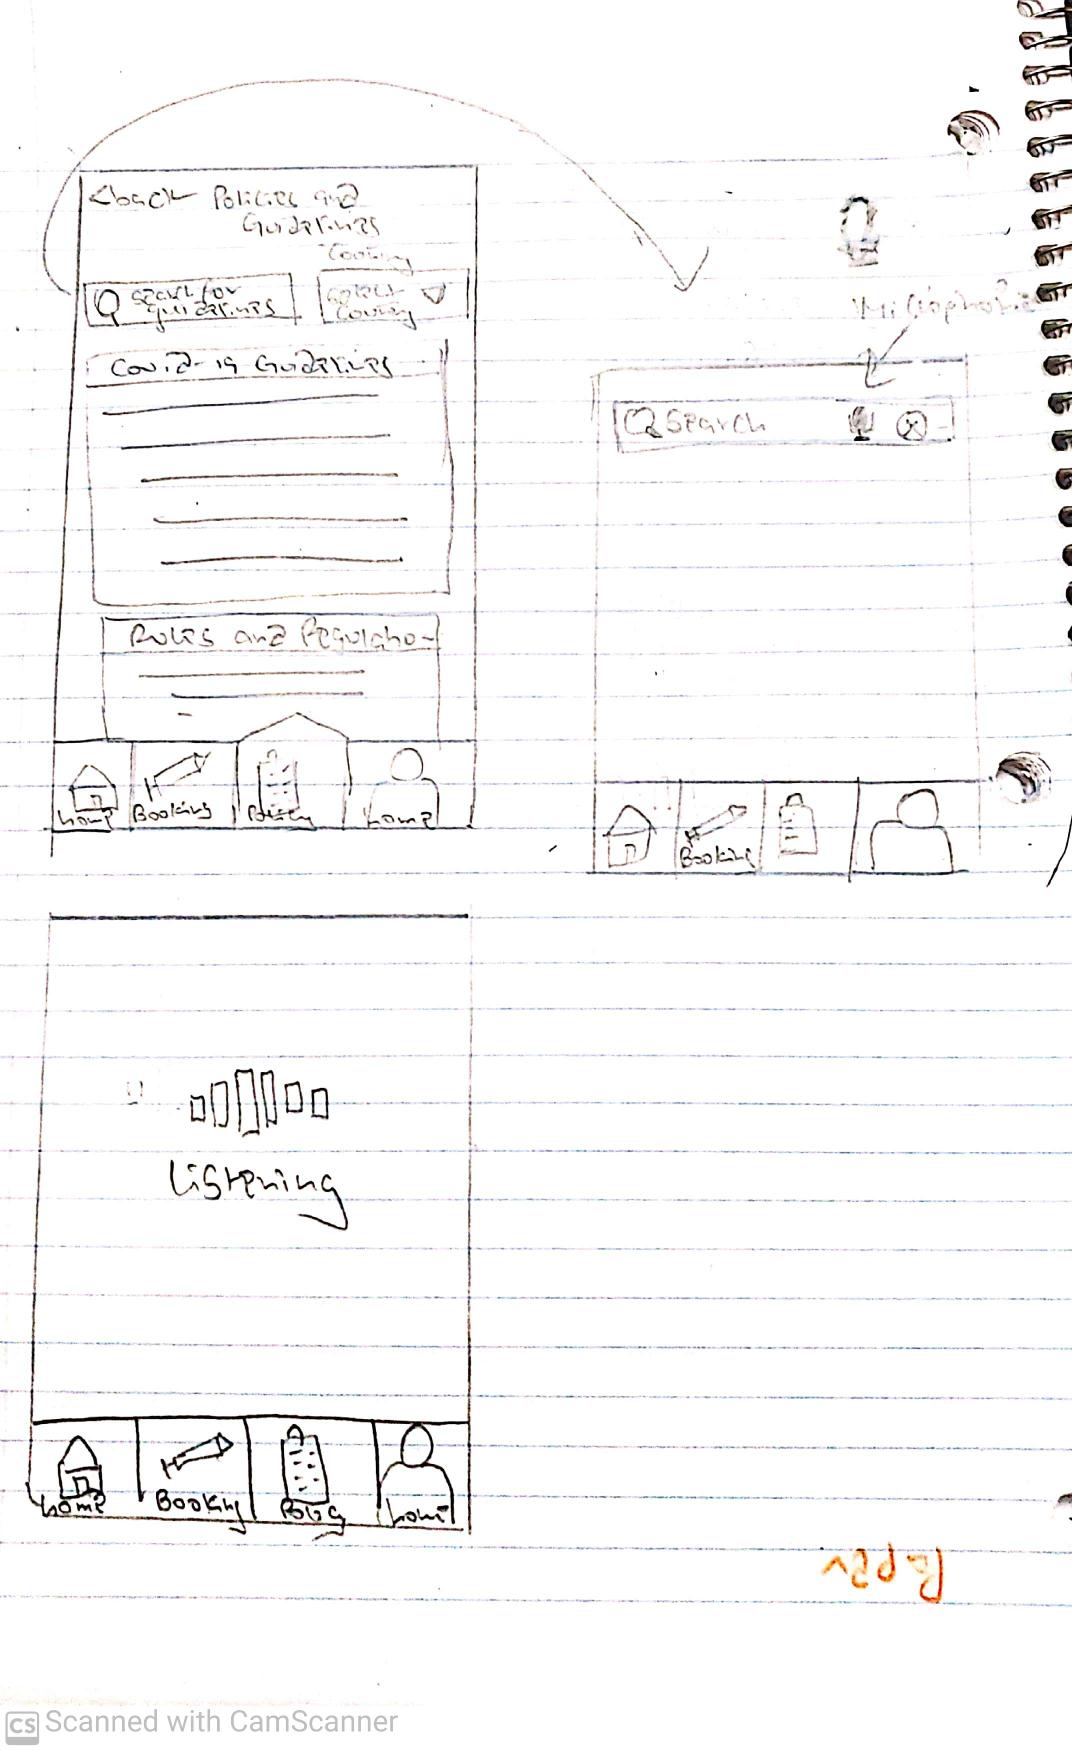 <back Policies and
Guidelines
Country
Search for
guidelines
Select
Country
Covid-19 Guidelines
Rules and Regulation
home
Booking
Policy
home
Microphone
Search
Booking
Listening
home
Booking
Policy
home
CS Scanned with CamScanner